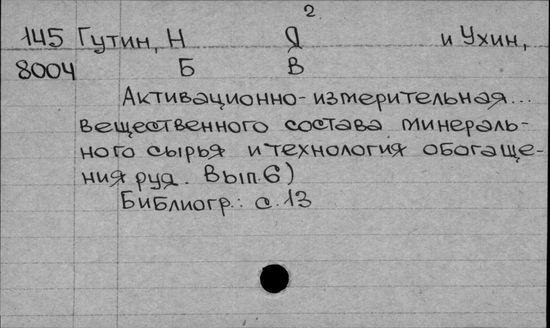 2
145 Гутин, Н Я и Ухин,
8004 Б В
Активационно-измерительная...
вещественного состава минераль-
ного сырья и технология обогаще-
ния руд. Вып.6)
Библиогр.: с.13